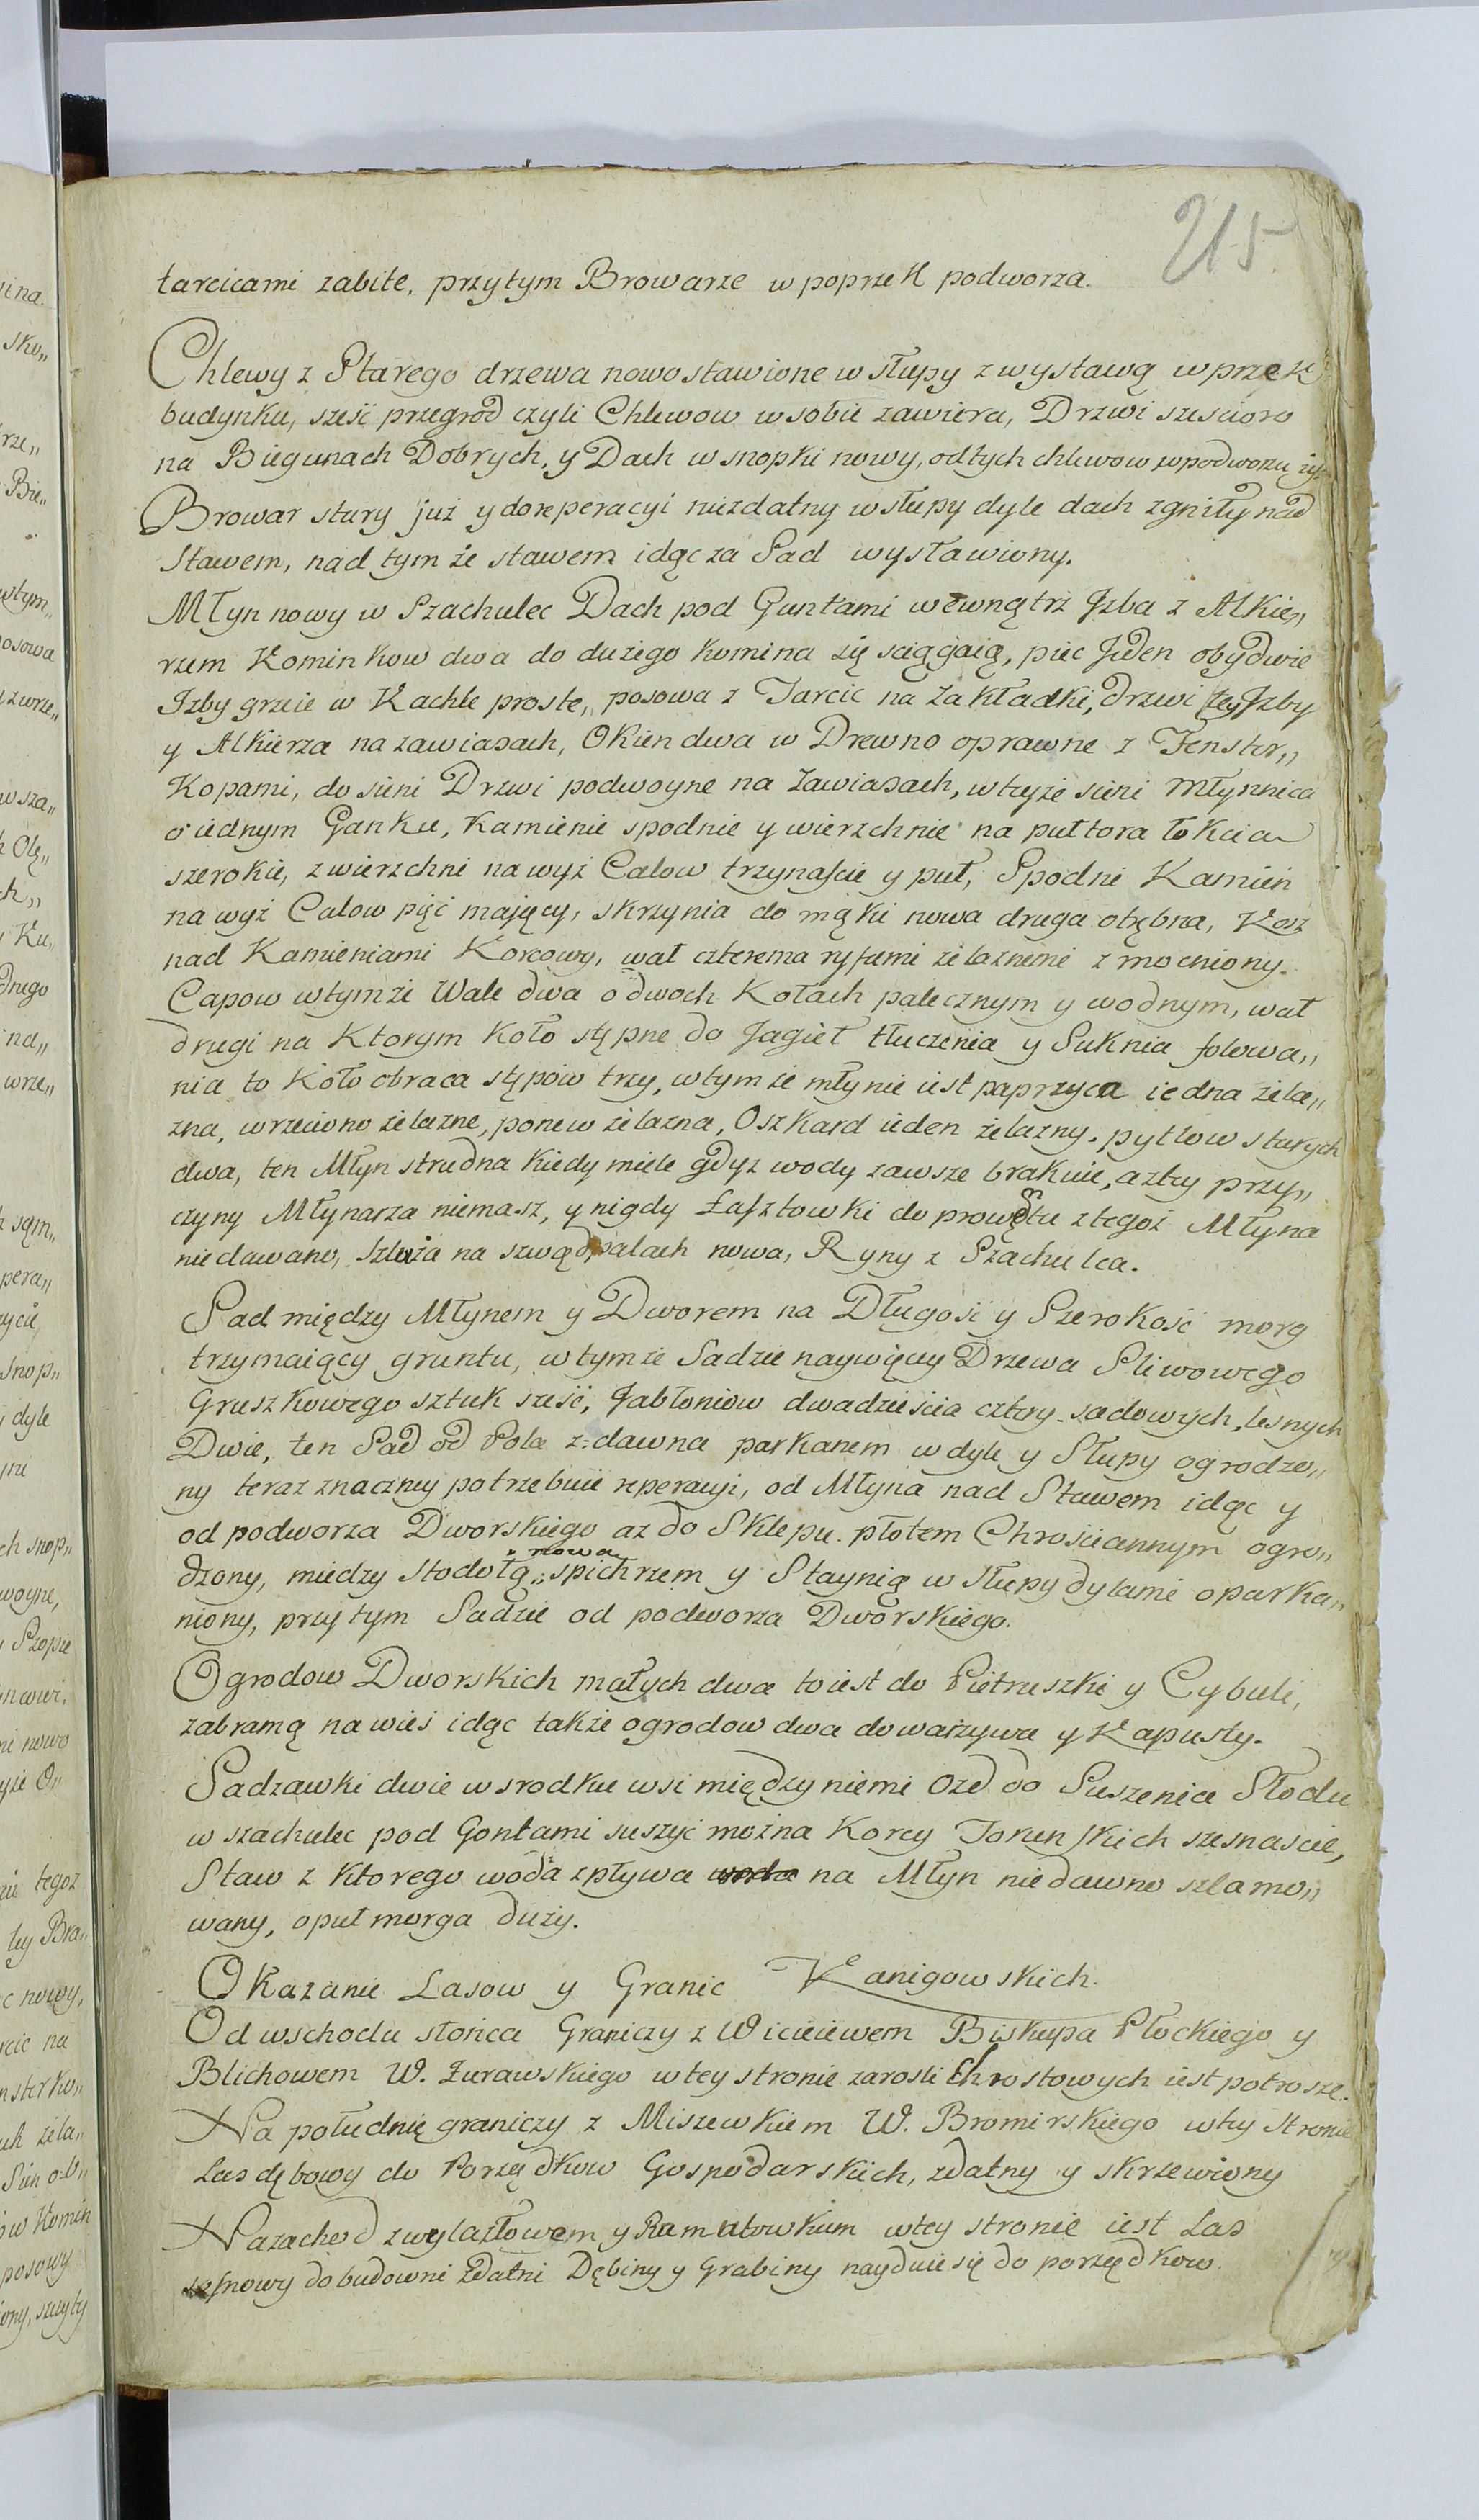 215
tarcicami zabite, przytym Browarze w poprzek podworza.
Chlewy z Starego drzewa nowostawione w słupy z wystawą wprzek
budynku, sześć przegrod czyli Chlewow w sobie zawiera, Drzwi szescioro
na Biegunach Dobrych, y Dach w snopki nowy, od tych chlewow w podworzu
Browar stary już y do reperacyi niezdatny w słupy dyle dach zgniły nad
Stawem, nad tym że stawem idąc za Sad wystawiony.
Młyn nowy w Szachulec Dach pod Guntami wewnątrz Jzba z Alkie„
rzem Kominkow dwa do dużego komina się sciągaią, piec Jeden obydwie
Jzby grzeie w Kachle proste, posowa z Tarcic na Zakładki, drzwi tey Jzby
y Alkierza na zawiasach, Okien dwa w Drewno oprawne z Fenster„
Kopami, do sieni Drzwi podwoyne na Zawiasach, w teyże sieni Młynnica
o iednym Ganku, Kamienie spodnie y wierzchnie na pułtora łokcia
szerokie, z wierzchni na wyż Calow trzynaście y puł, Spodni Kamień
na wyż Calow pięć mający, skrzynia do mąki nowa druga otrębna, Kosz
nad Kamieniami Korcowy, wał czterema ryfami żelaznemi zmocniony.
Capow w tymże Wale dwa o dwoch Kołach palecznym y wodnym, wał
drugi na Ktorym Koło stępne do Jagieł tłuczenia y Suknia folowa„
nia to Koło obraca stępow trzy, w tymże młynie iest paprzyca iedna żela„
zna, wrzeciono żelazne, ponew żelazna, Oszkard ieden żelazny, pytlow starych
dwa, ten Młyn strudna kiedy miele gdyż wody zawsze brakuie, a ztey przy„
czyny Młynarza niemasz, y nigdy Łasztowki do prowętu z tegoż Młyna
nie dawano, szluża na szwąd palach nowa, Ryny z Szachulca.
Sad między Młynem y Dworem na Długość y Szerokość morg
trzymaiący gruntu, w tymże Sadzie naywięcey Drzewa Sliwowego
Gruszkowego sztuk sześć, Jabłoniow dwadzieścia cztery sadowych, lesnych
Dwie, ten Sad od Pola z: dawna parkanem w dyle y Słupy ogrodzo„
ny teraz znaczney potrzebuie reperacyi, od Młyna nad Stawem idąc y
od podworza Dworskiego aż do Sklepu płotem Chrościannym ogro„
dzony, miedzy Stodołą „nową spichrzem y Staynią w Słupy dylami oparka„
niony, przy tym Sadzie od podworza Dworskiego.
Ogrodow Dworskich małych dwa to iest do Pietruszki y Cybuli,
za bramą na wieś idąc także ogrodow dwa do warzywa y Kapusty.
Sadzawki dwie w srodku wsi między niemi Ozd do Suszenia Słodu
w szachulec pod Gontami suszyć można Korcy Torunskich szesnascie,
Staw z Ktorego woda zpływa woda na Młyn niedawno szlamo„
wany, o puł morga duży.
Okazanie Lasow y Granic Kanigowskich.
Od wschodu słońca Graniczy z Wicieiewem Biskupa Płockiego y
Blichowem W. Żurawskiego w tey stronie zarosli Chrostowych iest potrosze.
Na południe graniczy z Miszewkiem W. Bromirskiego w tey Stronie
Las dębowy do Porządkow Gospodarskich, zdatny y skrzewiony
Na zachod z wylazłowem y Ramutowkiem w tey stronie iest Las
sosnowy do budowni zdatni Dębiny y Grabiny nayduie się do porządkow.